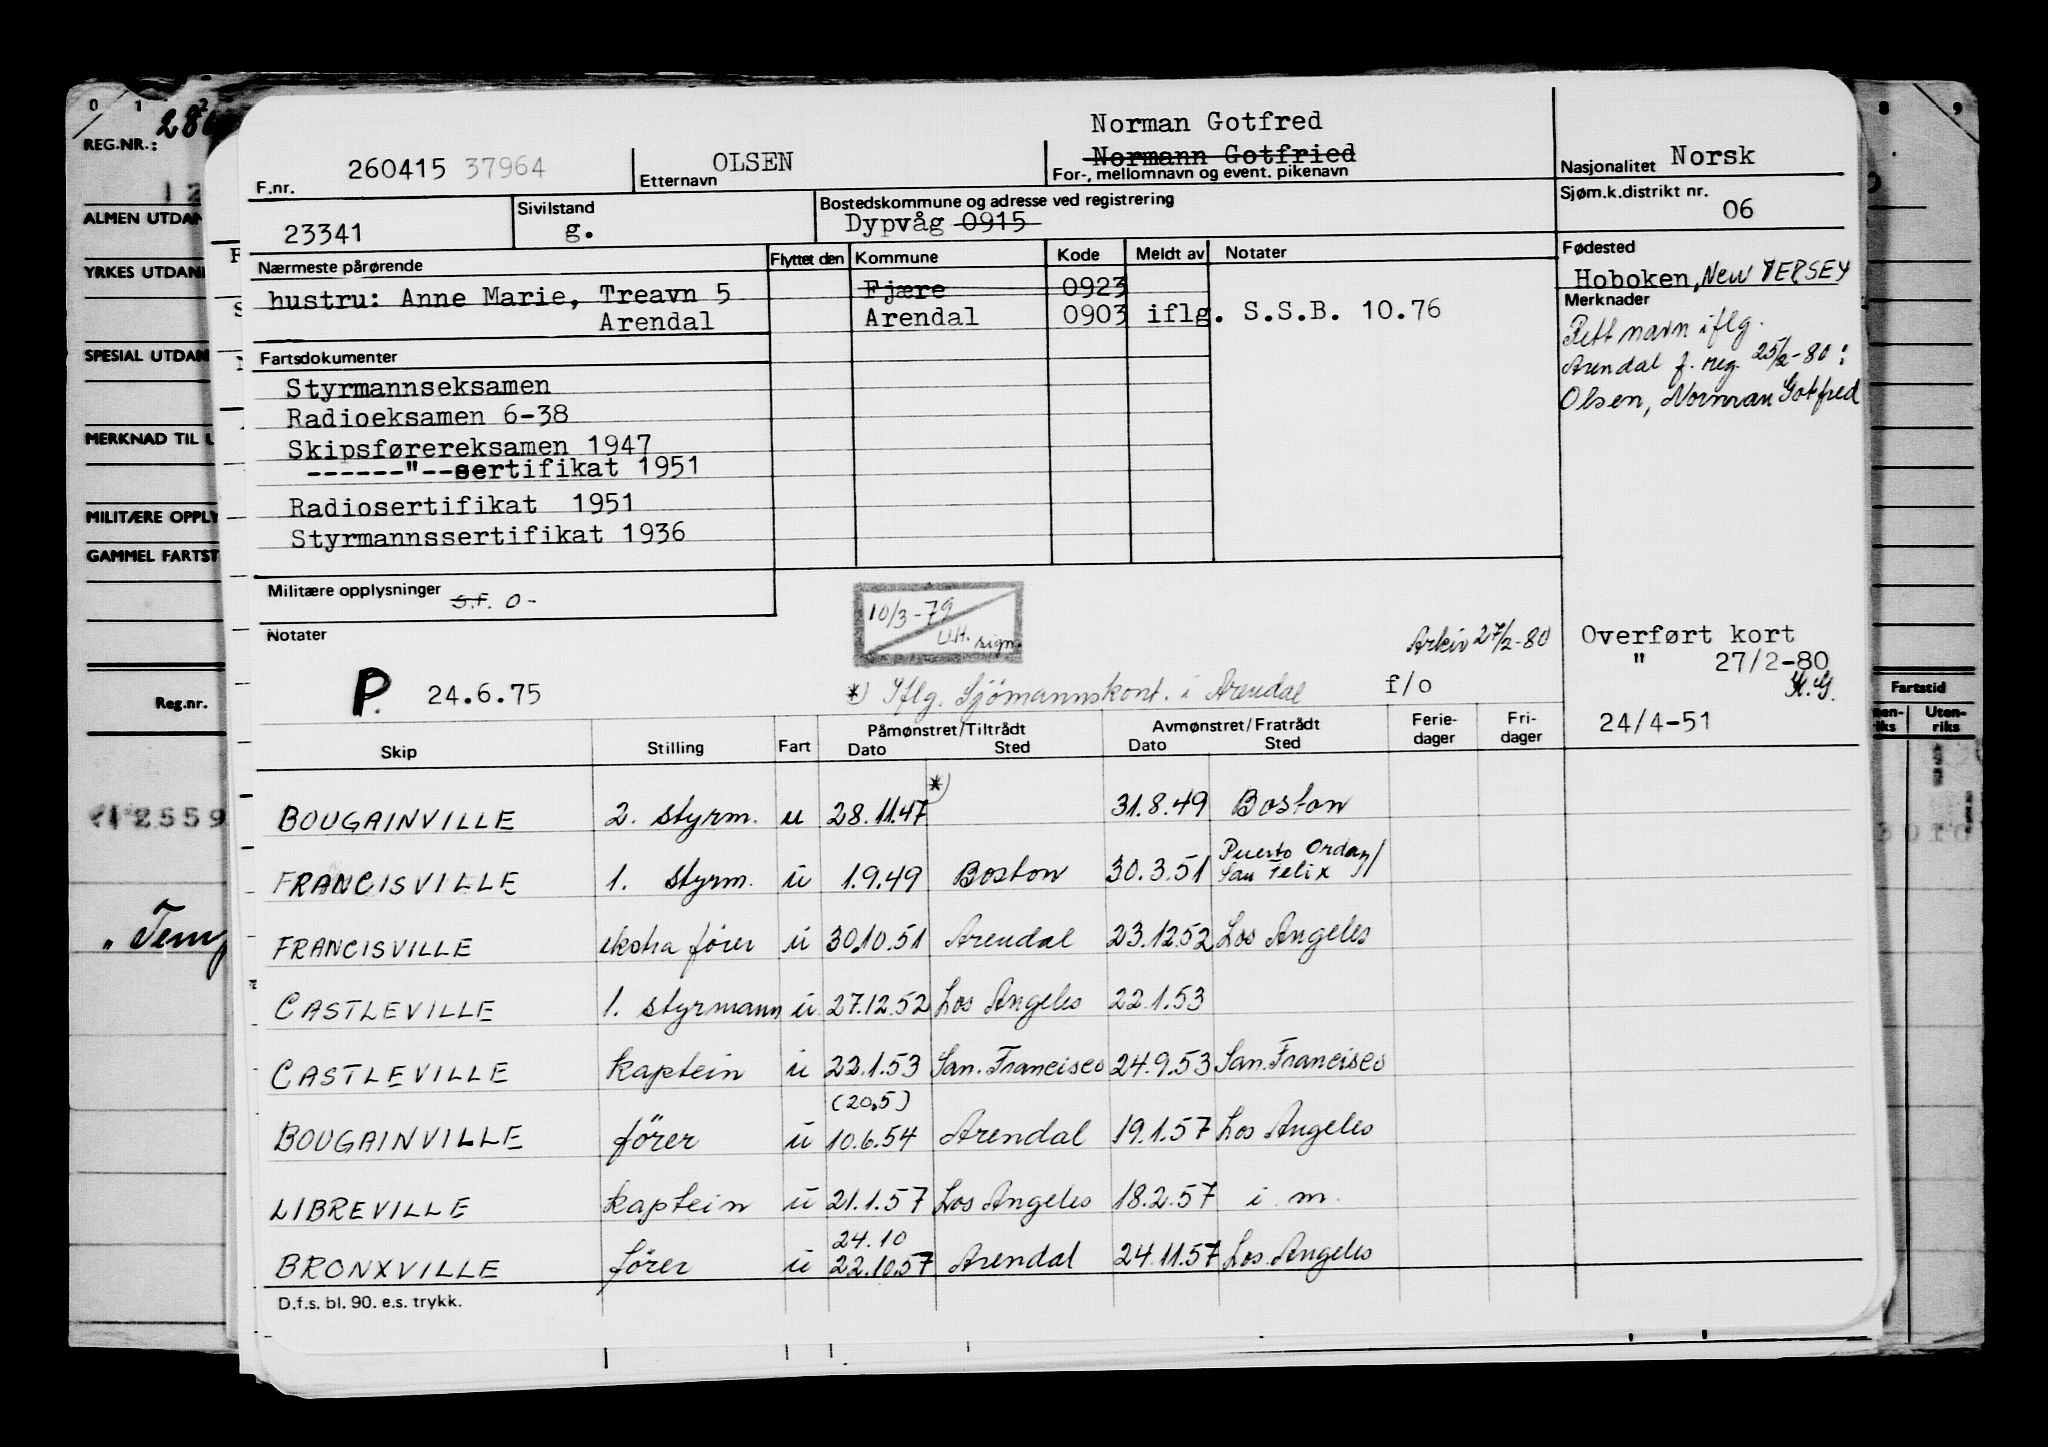 0 1 2
8 9
REG.NR.:
ALMEN UTDAN
YRKES UTDAN
SPESIAL UTDAN
MERKNAD TIL
MILITÆRE OPPLY
GAMMEL FARTST
Reg.nr.
2559
Fartstid
Uten-
riks
Norman Gotfred
260415 37964 OLSEN Normann Gotfried Nasjonalitet Norsk
F.nr. Etternavn For-, mellomnavn og event. pikenavn
23341 Sivilstand g. Bostedskommune og adresse ved registrering Sjøm.k.distrikt nr.
Dypvåg 0915 06
Nærmeste pårørende Flyttet den Kommune Kode Meldt av Notater Fødested
hustru: Anne Marie, Treavn 5 Fjære 0923 Hoboken, New JERSEY
Arendal Arendal 0903 iflg. S.S.B. 10.76 Merknader
Rett navn iflg.
Arendal f. reg. 25/2-80:
Olsen, Norman Gotfred
Fartsdokumenter
Styrmannseksamen
Radioeksamen 6-38
Skipsførereksamen 1947
------"--sertifikat 1951
Radiosertifikat 1951
Styrmannssertifikat 1936
Militære opplysninger S.F. O-
10/3-79
U.H. sign.
Notater
Arkiv 27/2-80 Overført kort
" 27/2-80
K.G.
P. 24.6.75 *) Iflg. Sjömannskont. i Arendal f/o
24/4-51
Skip Stilling Fart Påmønstret/Tiltrådt Avmønstret/Fratrådt Ferie- Fri-
Dato Sted Dato Sted dager dager
*)
BOUGAINVILLE 2. styrm. u 28.11.47 31.8.49 Boston
FRANCISVILLE 1. styrm. u 1.9.49 Boston 30.3.51 Puerto Ordaz/
San Felix
FRANCISVILLE ekstra fører u 30.10.51 Arendal 23.12.52 Los Angeles
CASTLEVILLE 1. styrmann u 27.12.52 Los Angeles 22.1.53
CASTLEVILLE kaptein u 22.1.53 San. Francisco 24.9.53 San. Francisco
(20.5)
BOUGAINVILLE fører u 10.6.54 Arendal 19.1.57 Los Angeles
LIBREVILLE kaptein u 21.1.57 Los Angeles 18.2.57 i. m.
24.10
BRONXVILLE fører u 22.10.57 Arendal 24.11.57 Los Angeles
D.f.s. bl. 90. e.s. trykk.